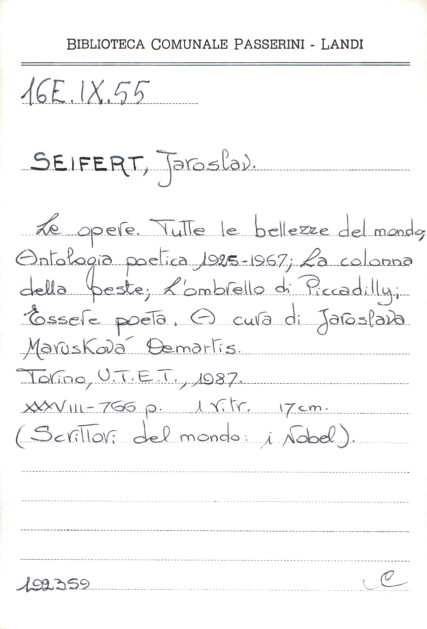 BIBLIOTECA COMUNALE PASSERINI - LANDI
16E.IX.55
SEIFERT, Jaroslav.
Le opere. Tutte le bellezze del mondo;
Antologia poetica 1925-1967; La colonna
della peste; L'ombrello di Piccadilly;
Essere poeta. A cura di Jaroslava
Marusková Demartis.
Torino, U.T.E.T., 1987.
XXXVIII-766 p. 1 ritr. 17 cm.
(Scrittori del mondo: i Nobel).
192359 C